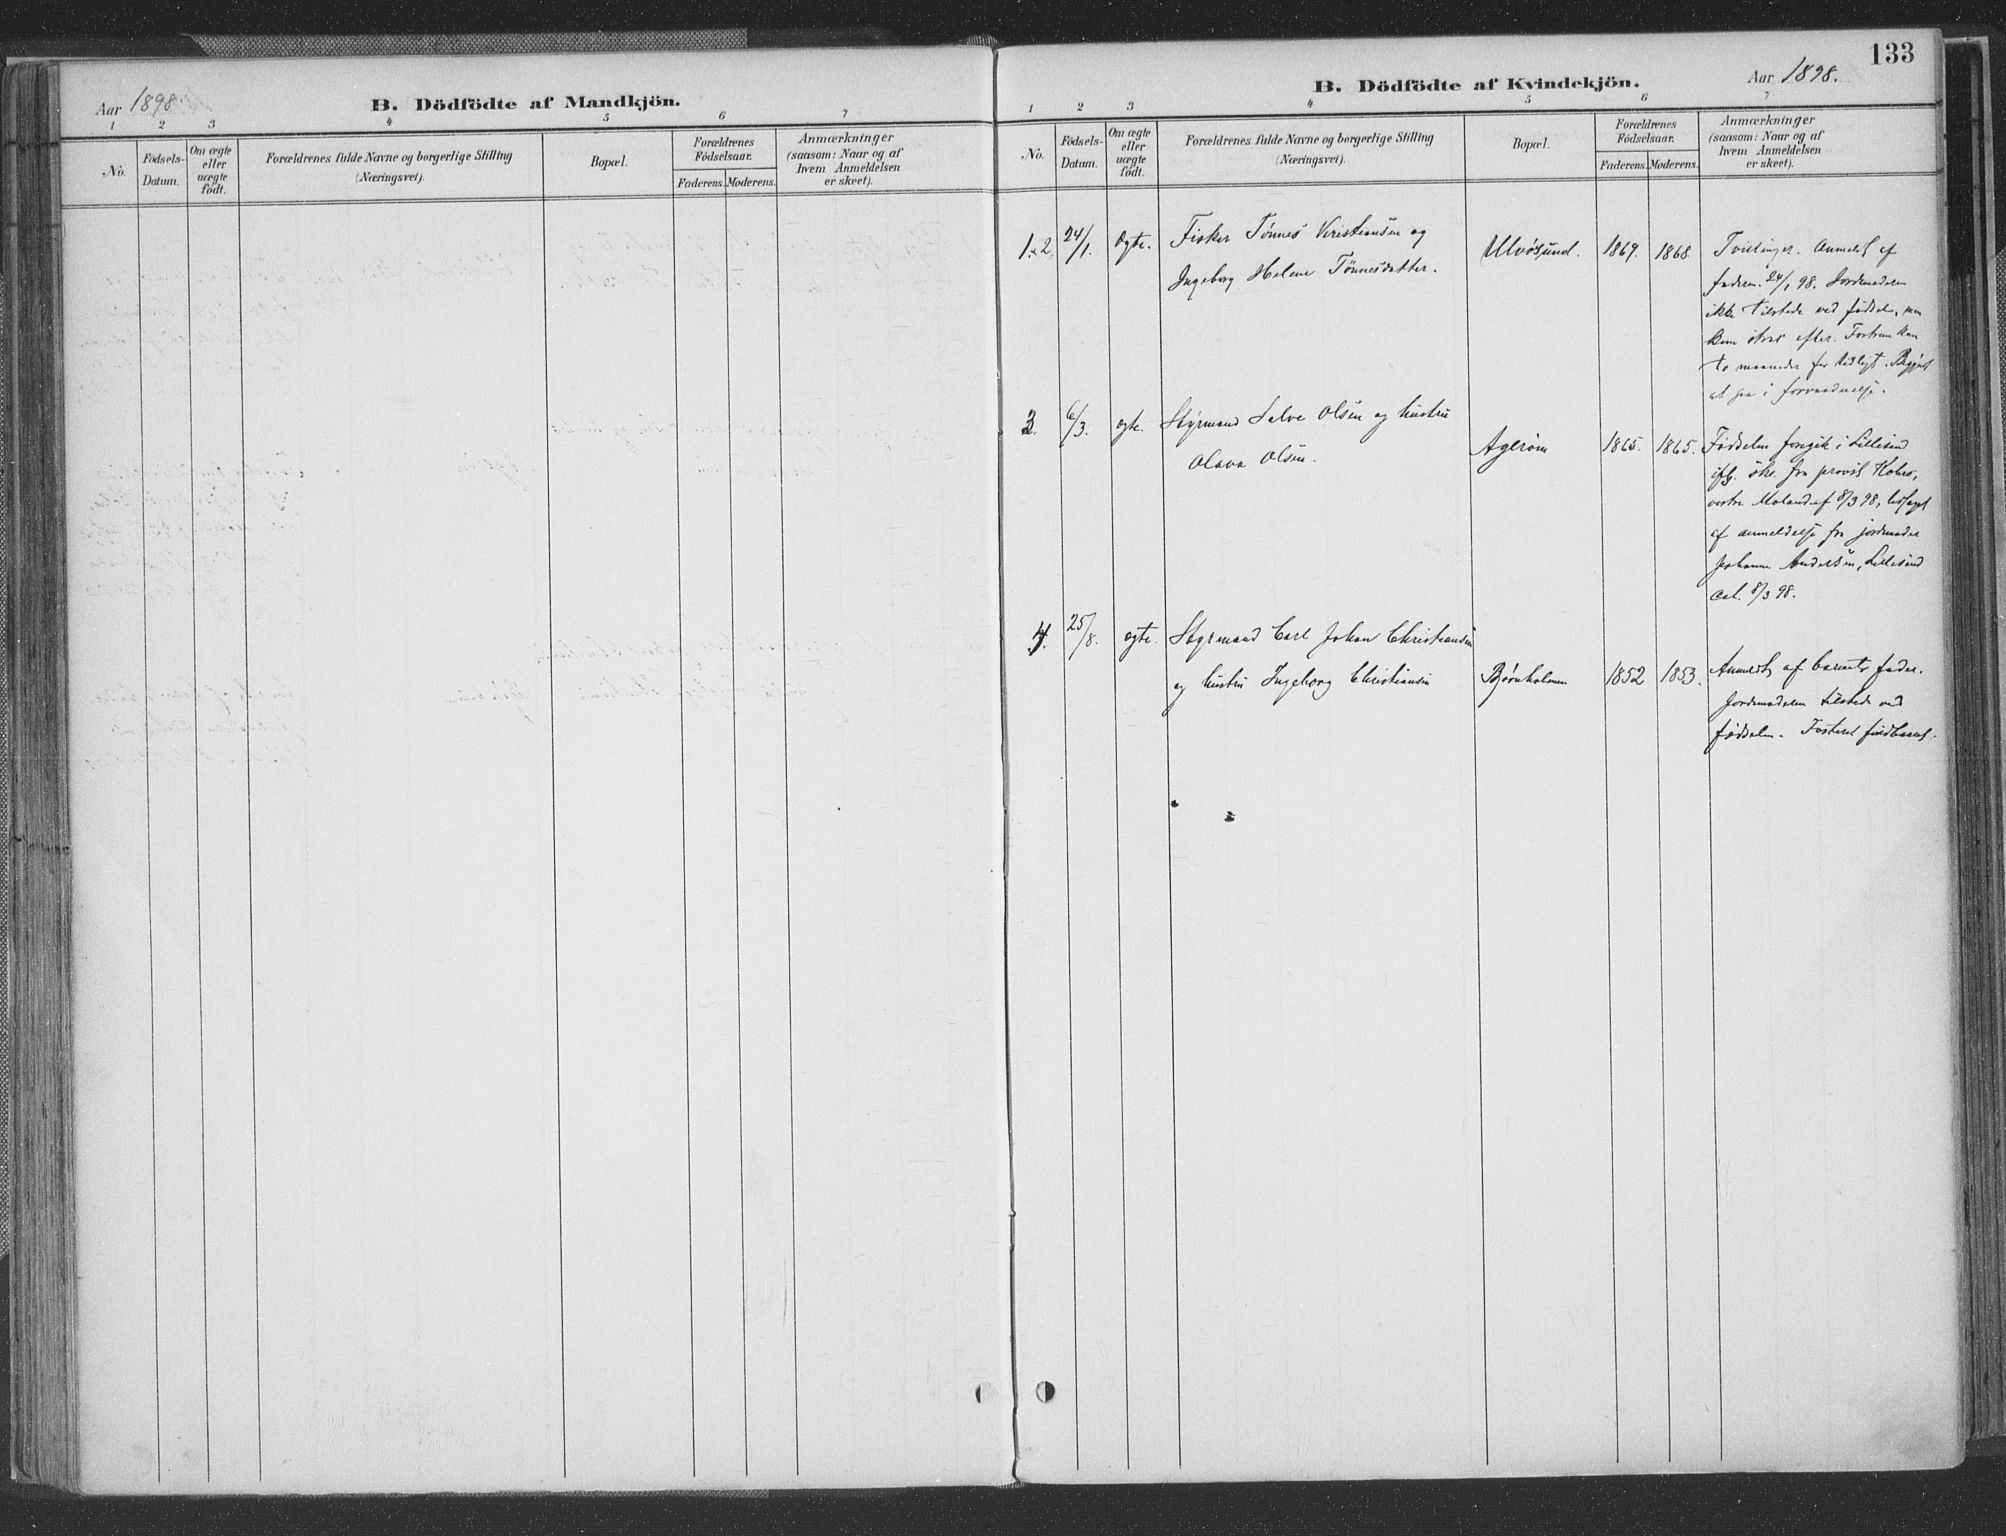 Aar 1898
B. Dödfödte af Mandkjön.
1 2 3 4 5 6 7
No.
Födsels-
Datum.
Om ægte
eller
uægte
födt.
Forældrenes fulde Navne og borgerlige Stilling
(Næringsvei).
Bopæl.
Forældrenes
Födselsaar.
Faderens. Moderens.
Anmærkninger
(saasom: Naar og af
hvem Anmeldelsen
er skeet).
133
B. Dödfödte af Kvindekjön.
Aar 1898.
1 2 3 4 5 6 7
No.
Födsels-
Datum.
Om ægte
eller
uægte
födt.
Forældrenes fulde Navne og borgerlige Stilling
(Næringsvei).
Bopæl.
Forældrenes
Födselsaar.
Faderens. Moderens.
Anmærkninger
(saasom: Naar og af
hvem Anmeldelsen
er skeet).
1.2. 24/1. Ogte. Fisker Tønnes Kristiansen og
Ingeborg Helene Tønnesdatter.
Ulvøsund. 1869. 1868
Tvillinger. Anmeldt af
faderen 24/1 98. Jordemoderen
ikke tilstede ved fødselen, men
kom strax efter.
to maaneder for tidligt.
at gaa i forraadnelse.
3. 6/3. ogte. Styrmand Salve Olsen og hustru
Olava Olsen.
Agerøen 1865. 1865.
Fødselen foregik i Lillesand
iflg. skr. fra provst
vestre Moland af 8/3 98, ledsaget
af anmeldelse fra jordmoder
Johanne Andersen, Lillesand
dat. 8/3 98.
4. 25/8. ogte. Styrmand Carl Johan Christiansen
og hustru Ingeborg Christiansen
Bjørnholmen 1852 1853.
Anmeldt af barnets fader.
Jordemoderen tilstede ved
fødselen. Fosteret fuldbaaret.